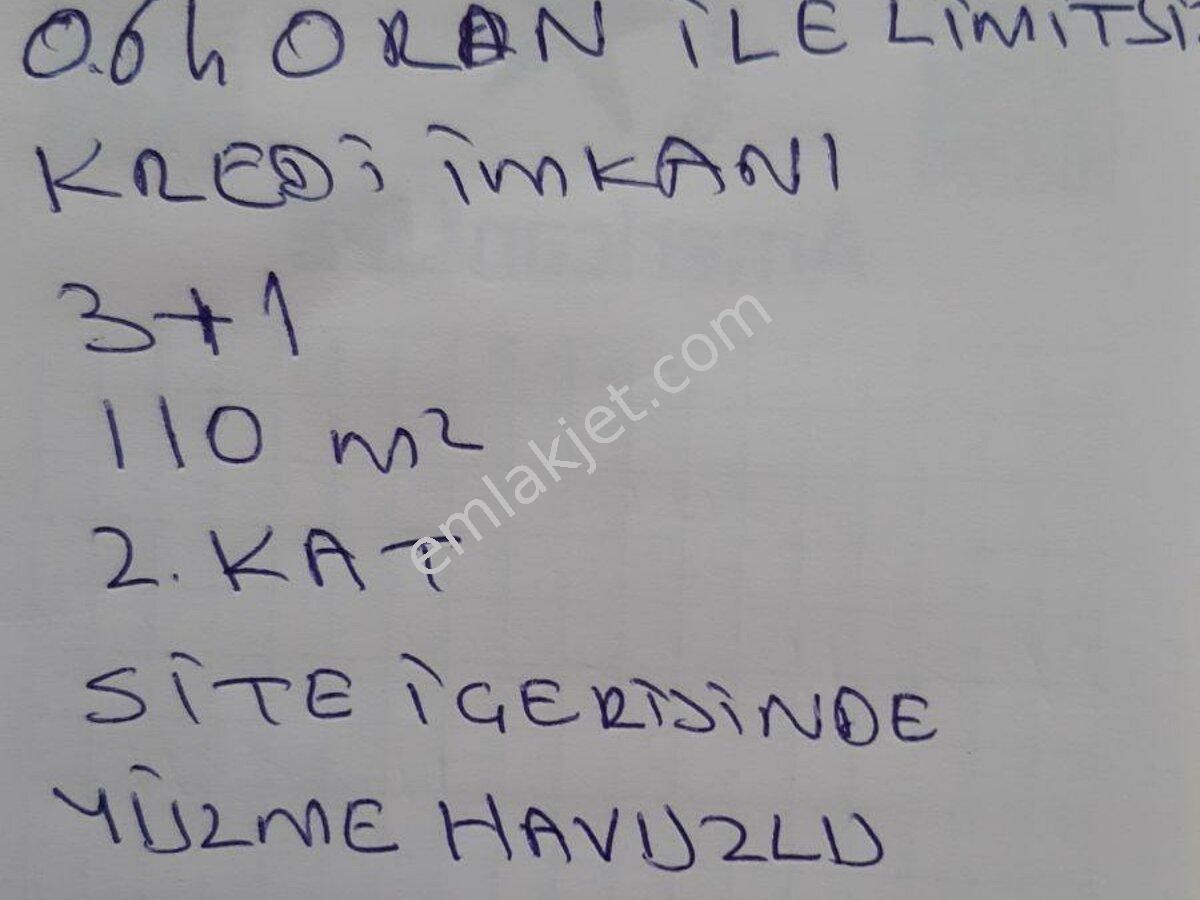 0.64 ORAN İLE LİMİTSİZ
KREDİ İMKANI
3+1
110 m²
2. KAT
SİTE İÇERİSİNDE
YÜZME HAVUZLU
emlakjet.com